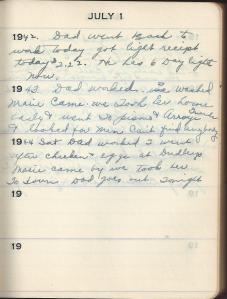 JULY 1
1942. Dad went back to
work today got light receipt
today $2.22. He has 6 Day light
now.
1943. Dad worked. we washed
Marie came we took her home
early & went to Pismo & Arroyo Grande
& looked for men Can't find anybody
1944 Sat Dad worked I went
after chicken & eggs at
Marie came by we took her
to town. Dad goes out tonight
19
19